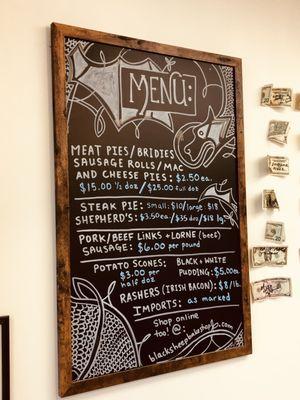 MENU:
MEAT PIES/BRIDIES
SAUSAGE ROLLS/MAC
AND CHEESE PIES: $2.50 ea.
$15.00 ½ doz/$25.00 full doz
STEAK PIE: small: $10/large: $18
SHEPHERD'S: $3.50 ea/$35 doz/$18 lg
PORK/BEEF LINKS + LORNE (beef)
SAUSAGE: $6.00 per pound
POTATO SCONES: $3.00 per half doz
BLACK & WHITE PUDDING: $5.00 ea.
RASHERS (IRISH BACON): $8/lb.
IMPORTS: as marked
Shop online
too! @:
blacksheepbakeshop.com